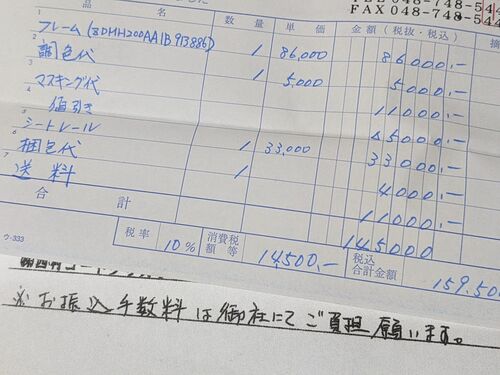 FAX 048-748-544
品 名 数 量 単 価 金 額 (税抜・税込) 摘
フレーム(ZDMH200AA1B913886) 1 86,000 86000.-
2 調色代 1 5,000 5000.-
3 マスキング代 11000.-
4 値引き 45000.-
5 シートレール 1 33,000 33000.-
6 梱包代 1 4000.-
7 送料 11000.-
合 計 145000
ウ-333 税率 10% 消費税額等 14,500.- 税込合計金額 159.50
※お振込手数料は御社にてご負担願います。